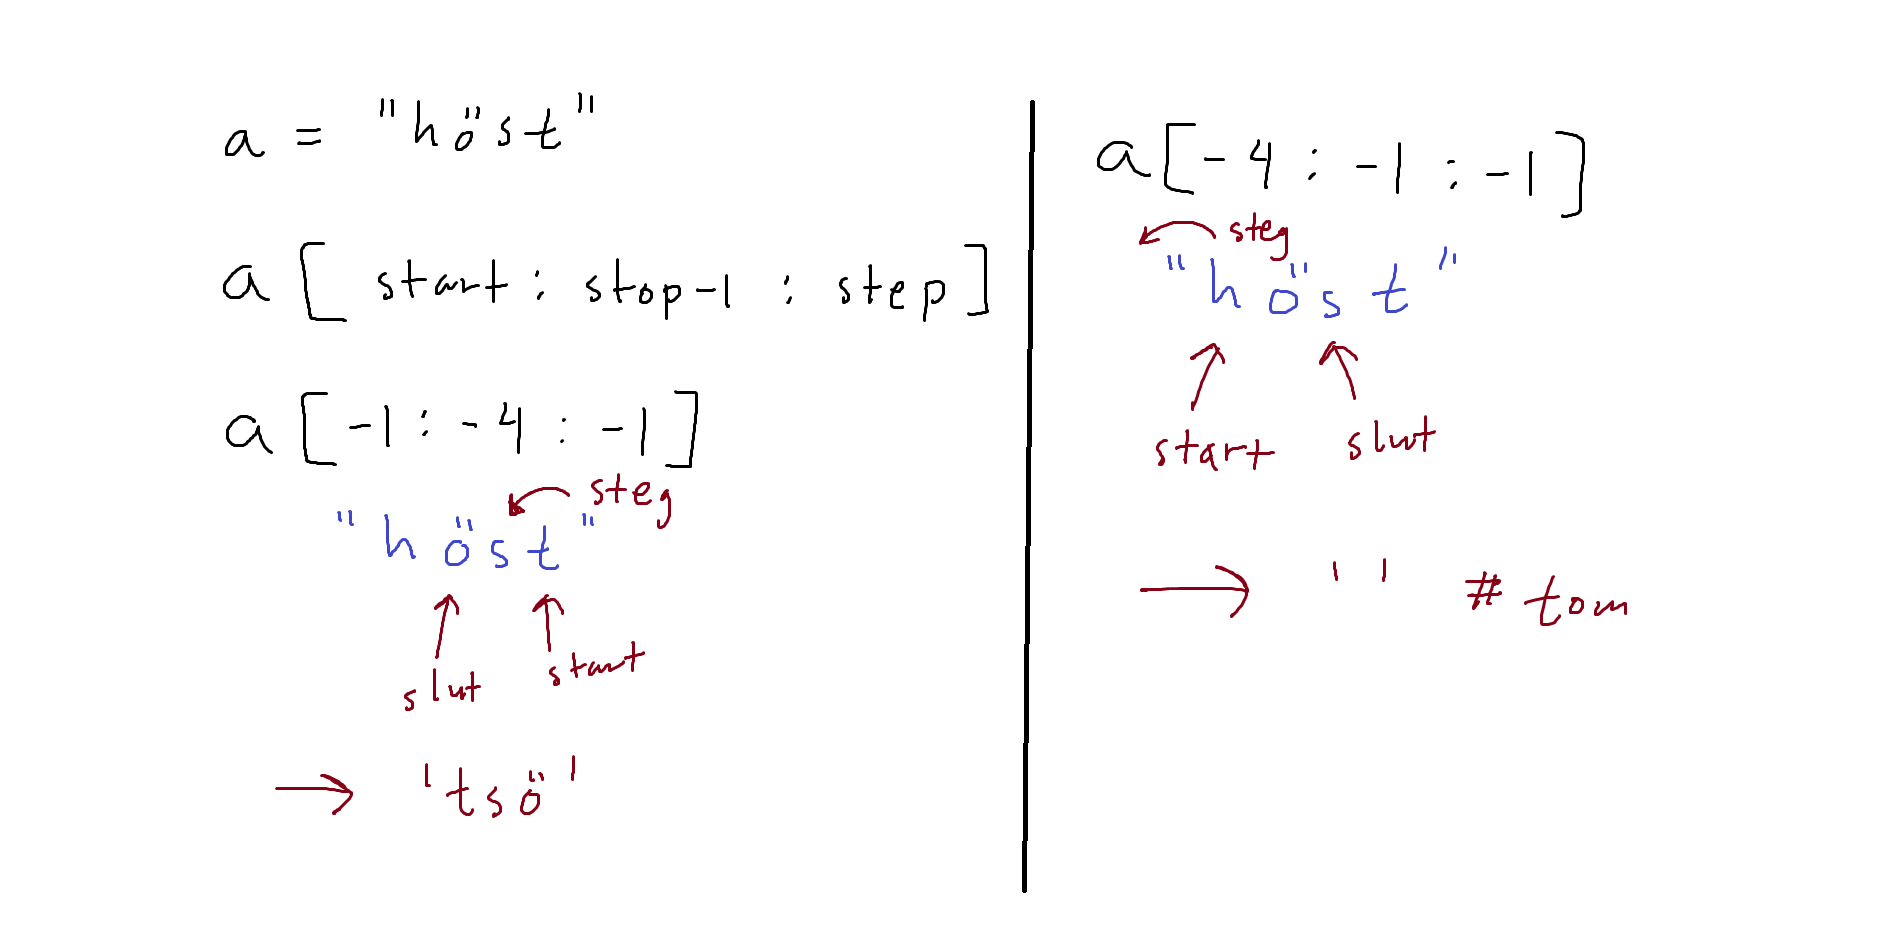 a = "höst"
a[ start : stop-1 : step]
a[-1 : -4 : -1]
steg
"höst"
slut start
→ 'tsö'
a[-4 : -1 : -1]
steg
"höst"
start slut
→ ' ' # tom